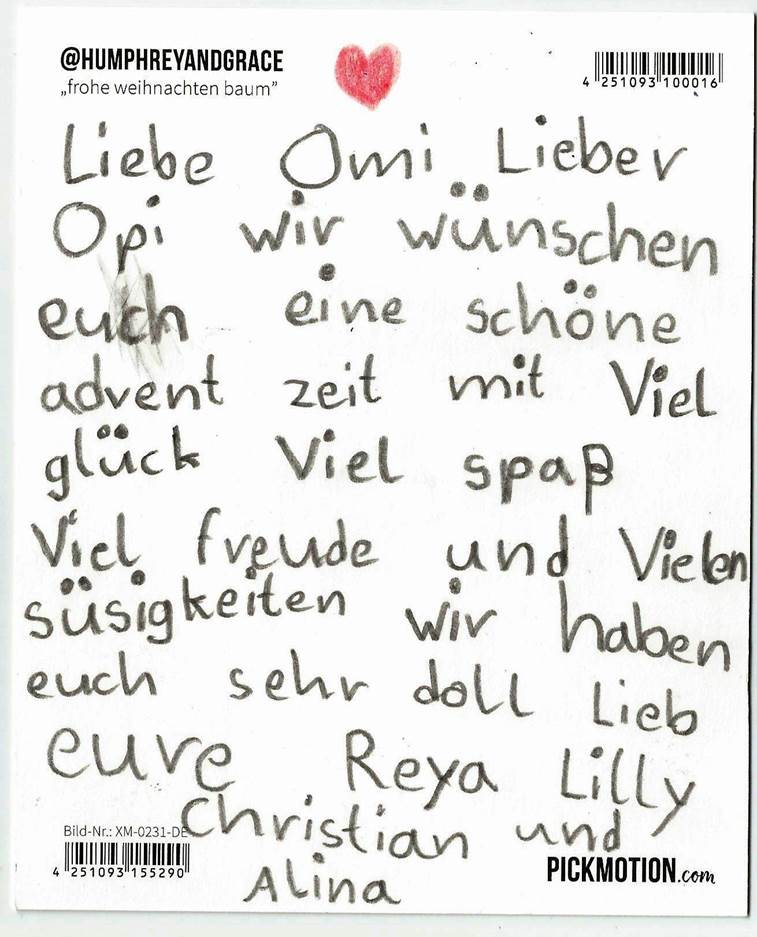 @HUMPHREYANDGRACE
„frohe weihnachten baum"
4 251093 100016
Liebe Omi Lieber
Opi wir wünschen
euch eine schöne
advent zeit mit Viel
glück Viel spaß
Viel freude und Vielen
süsigkeiten wir haben
euch sehr doll Lieb
eure Reya Lilly
Christian und
Alina
Bild-Nr.: XM-0231-DE
4 251093 155290
PICKMOTION.com